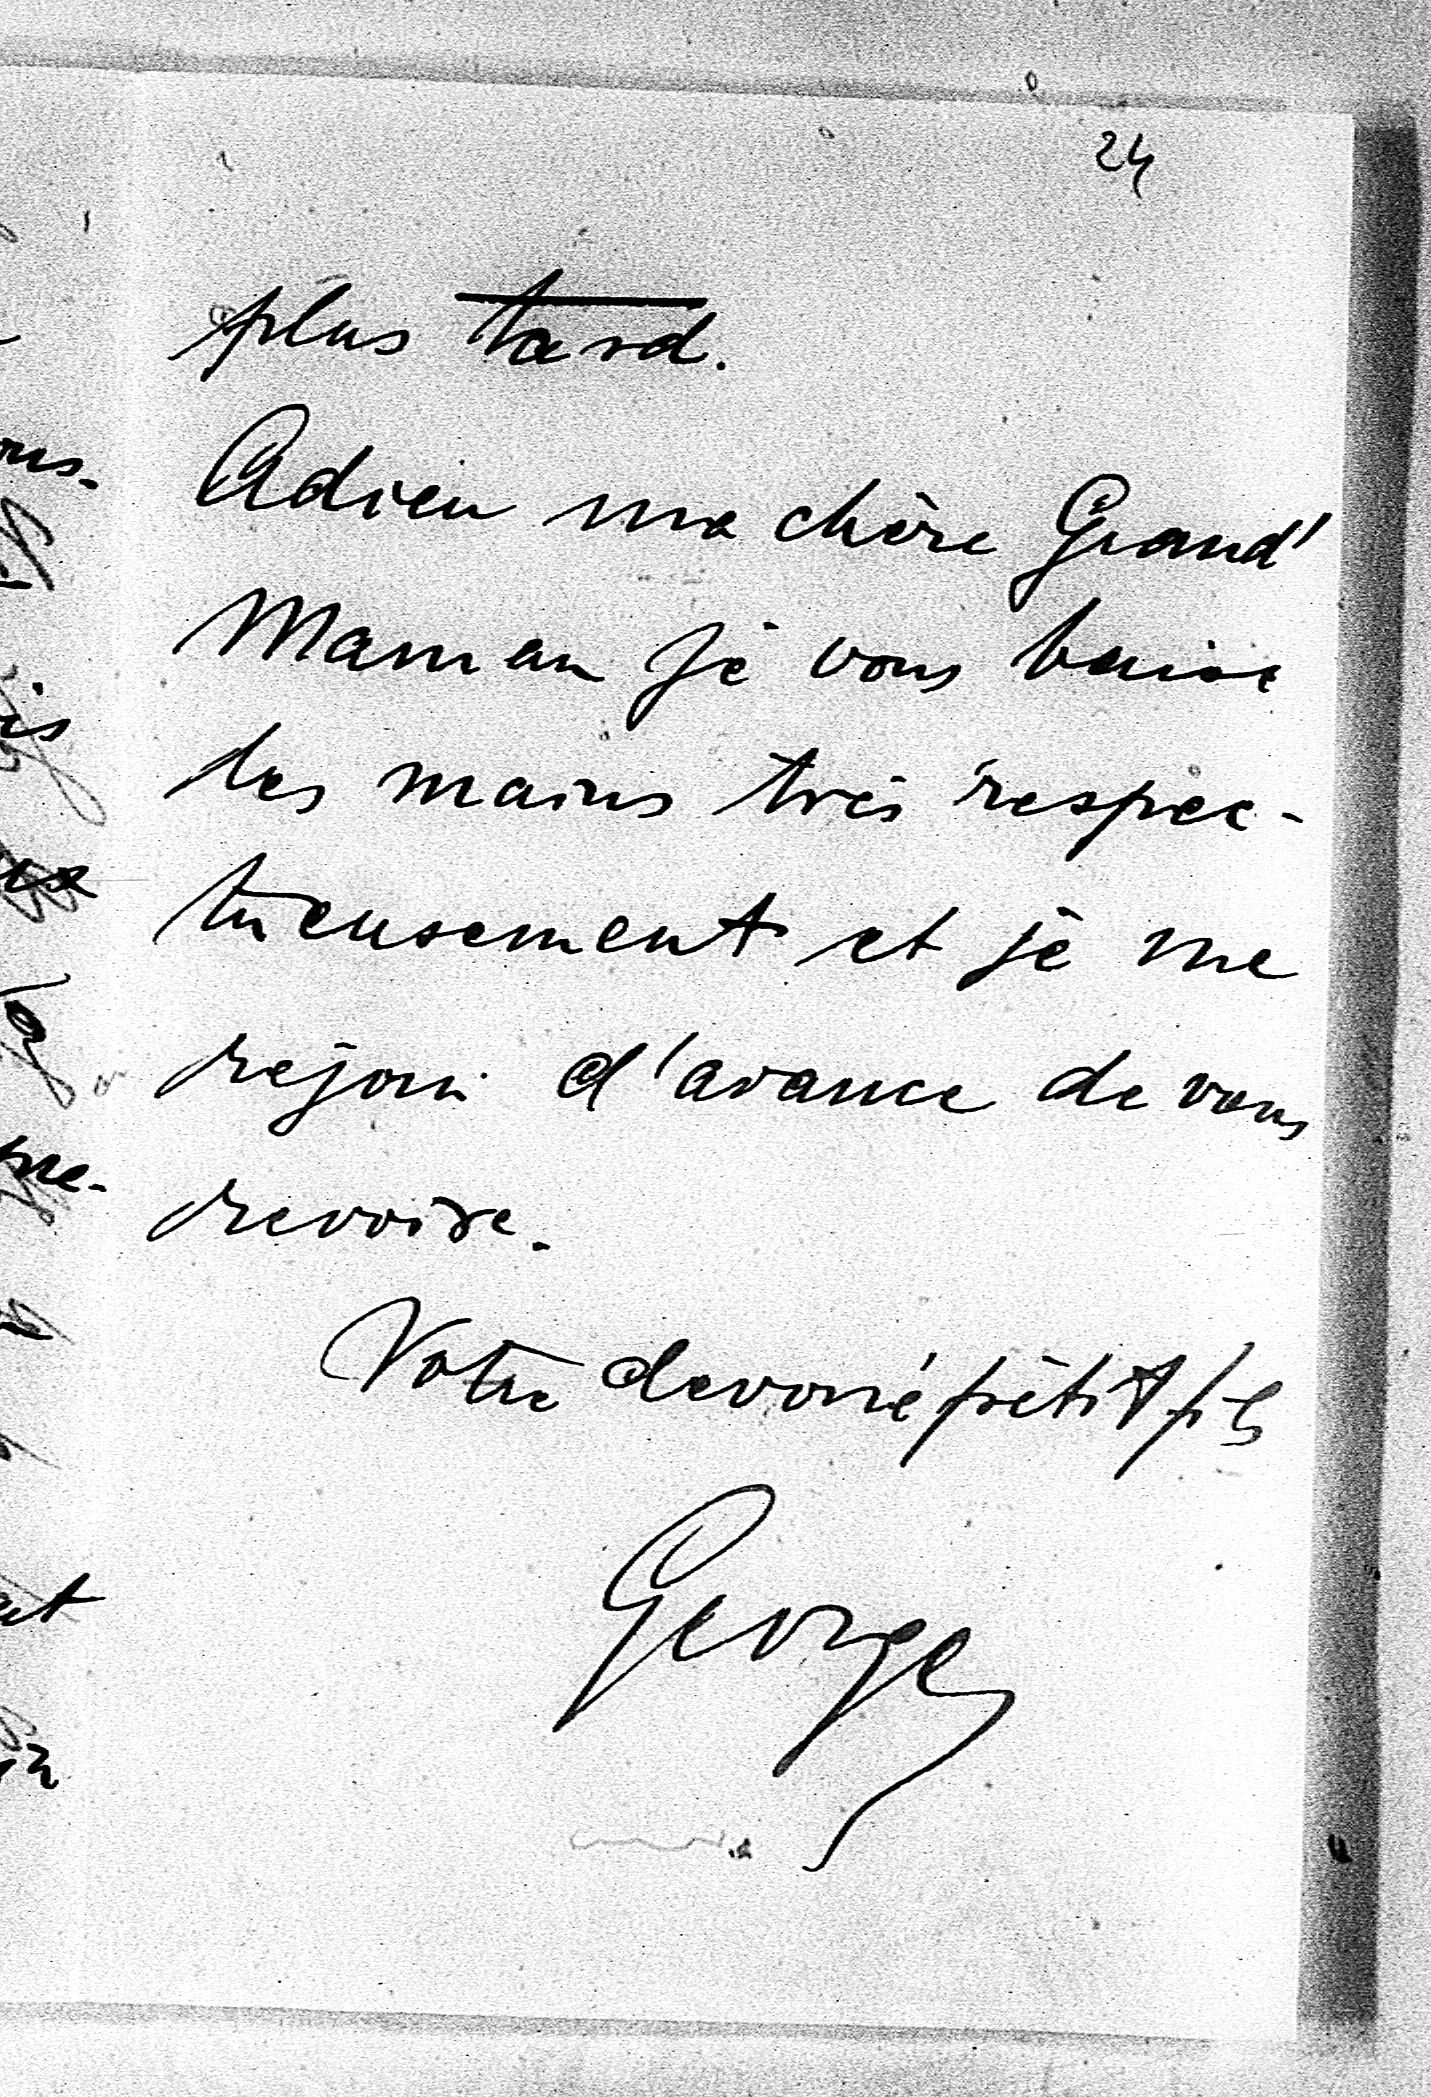 24
plus tard.
Adieu ma chère Grand'
Maman je vous baise
les mains très respec-
tueusement et je me
rejoui d'avance de vous
revoire.
Votre devoué pétit fils
Georges